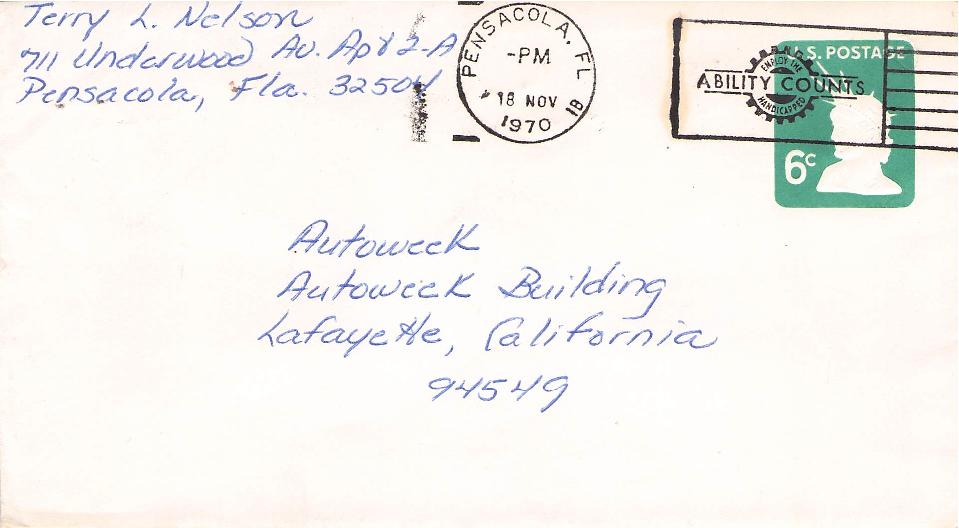 Terry L. Nelson
711 Underwood Av. Apt 2-A
Pensacola, Fla. 32504
PENSACOLA, FL
-PM
18 NOV
1970
1B
U.S. POSTAGE
EMPLOY THE
ABILITY COUNTS
HANDICAPPED
6c
Autoweek
Autoweek Building
Lafayette, California
94549